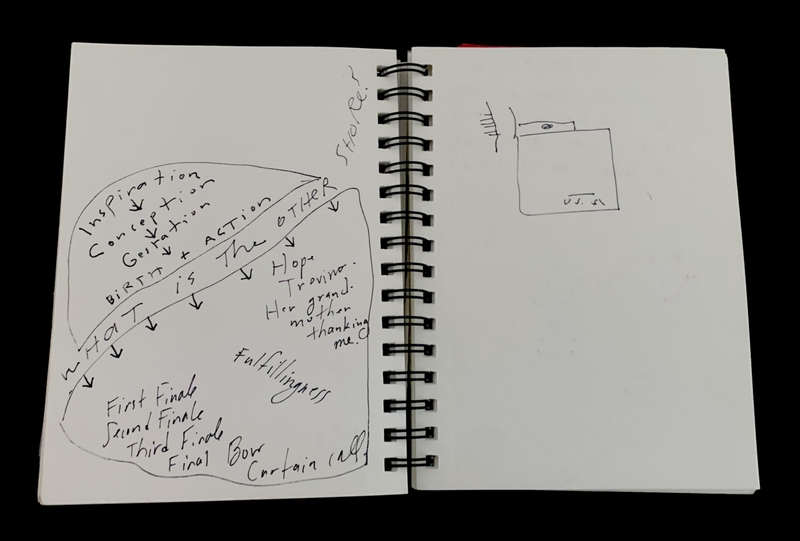 SHORE?
Inspiration
Conception
Gestation
BIRTH + ACTION
WHAT is The OTHER
Hope
Trevino.
Her grand-
mother
thanking
me.
Fulfillingness
First Finale
Second Finale
Third Finale
Final Bow
Curtain call